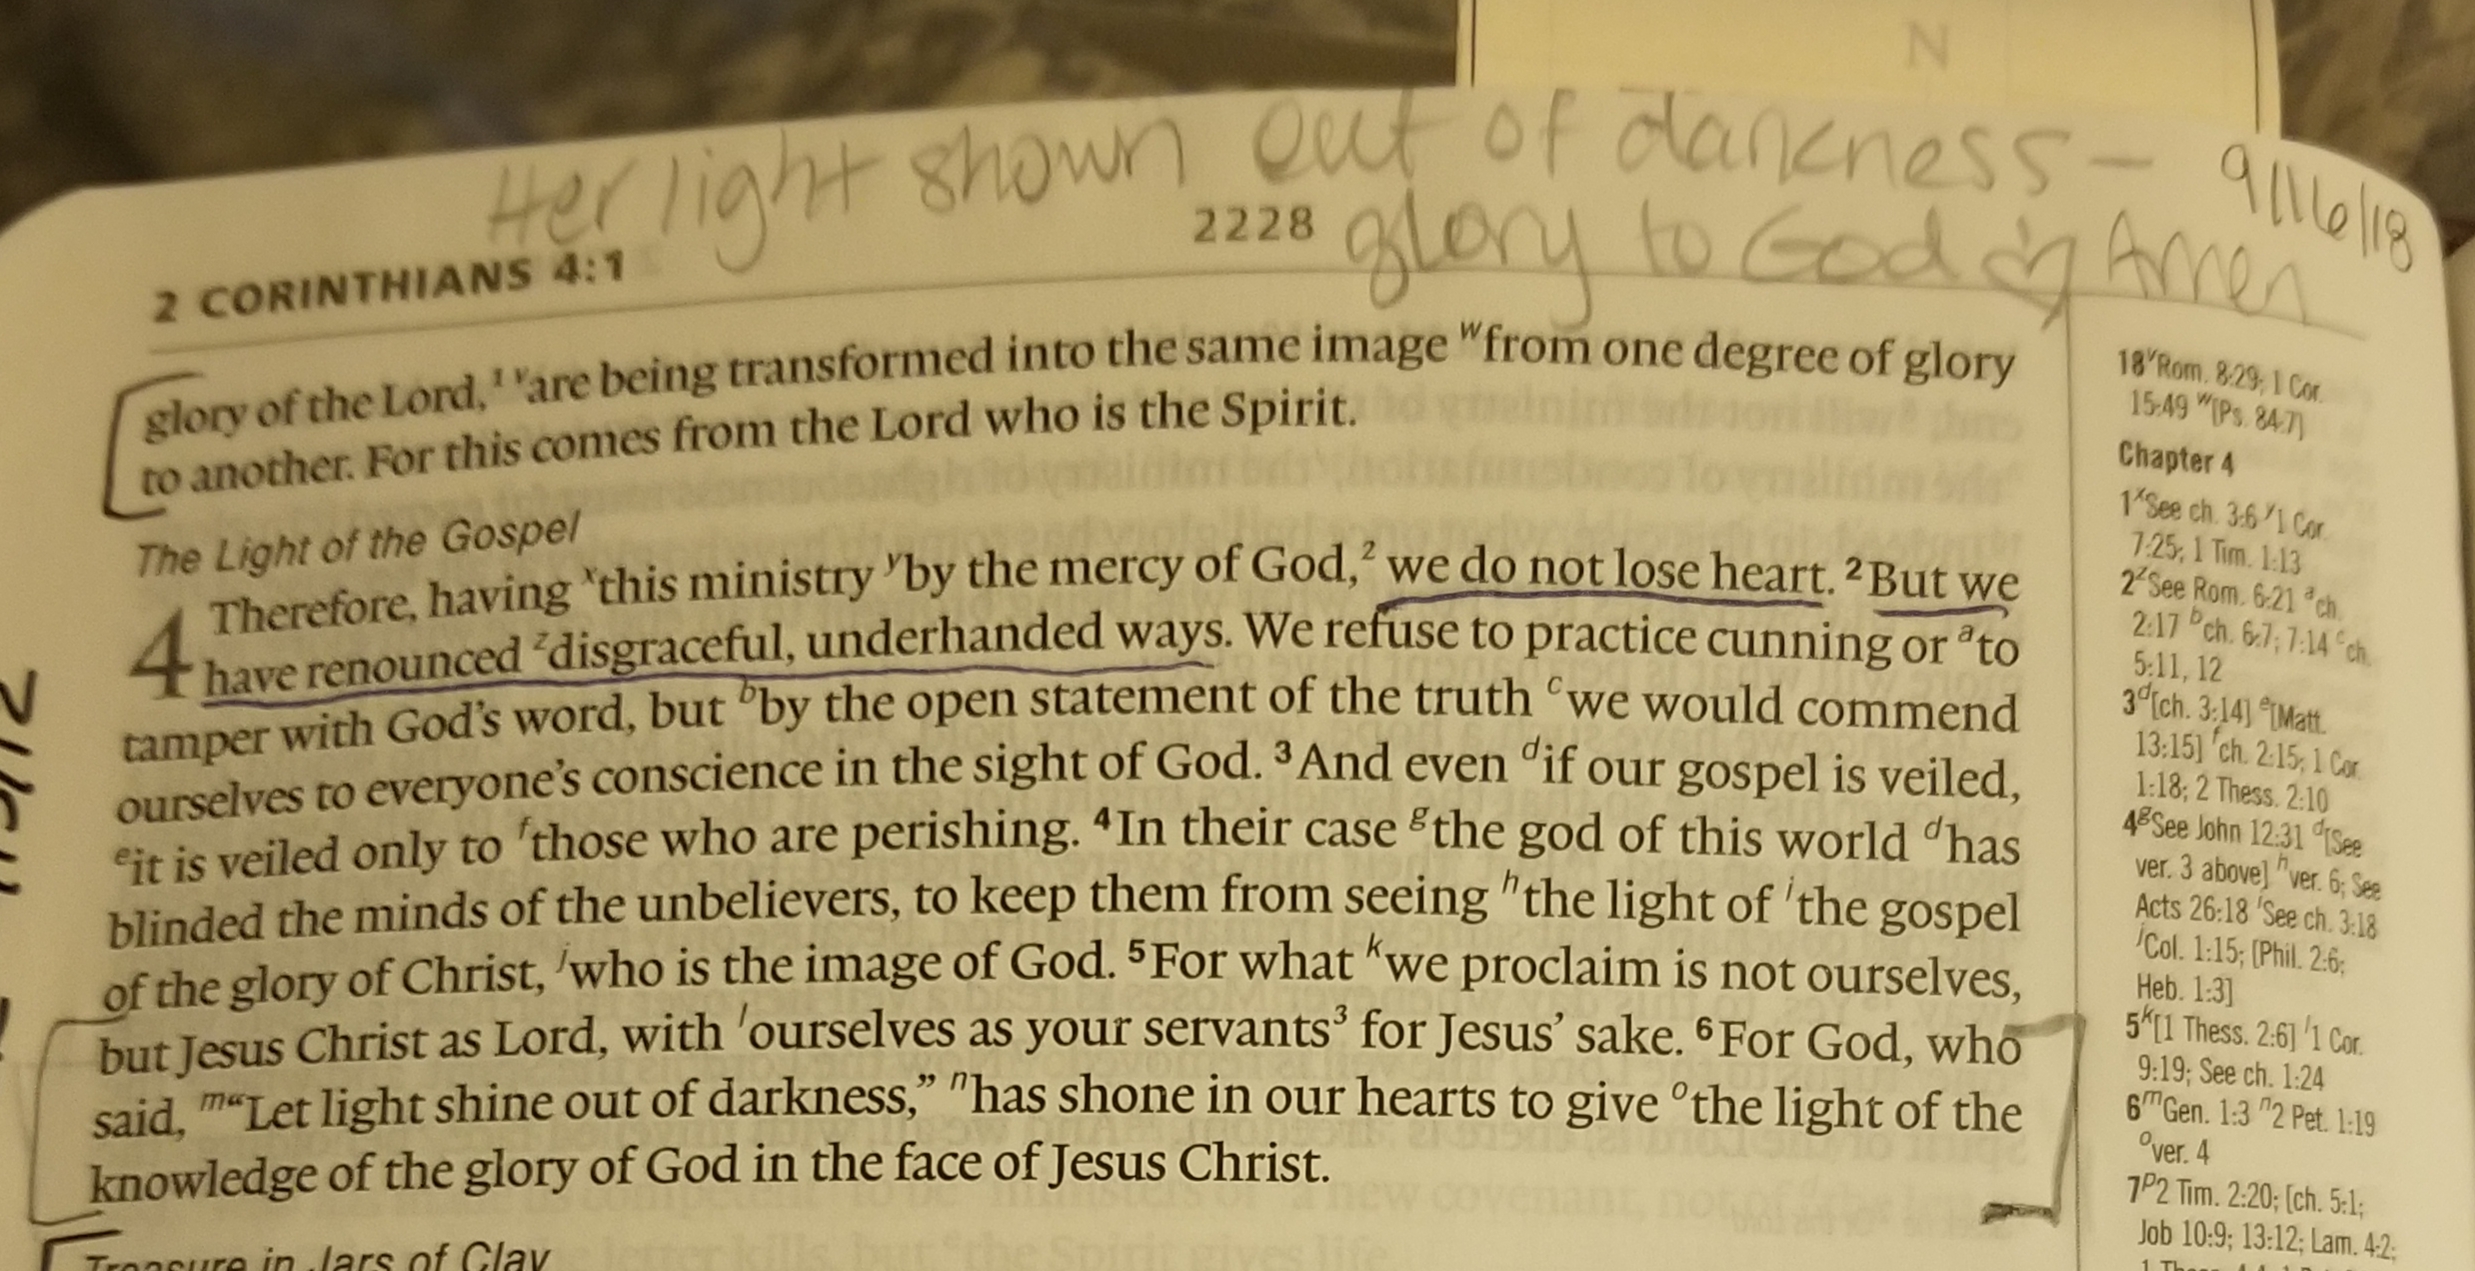 N
Her light shown out of darkness – 9/16/18
glory to God & Amen
2 CORINTHIANS 4:1
2228
glory of the Lord,¹ ᵛare being transformed into the same image ʷfrom one degree of glory
to another. For this comes from the Lord who is the Spirit.
The Light of the Gospel
4 Therefore, having ˣthis ministry ʸby the mercy of God,² we do not lose heart. ²But we
have renounced ᶻdisgraceful, underhanded ways. We refuse to practice cunning or ᵃto
tamper with God’s word, but ᵇby the open statement of the truth ᶜwe would commend
ourselves to everyone’s conscience in the sight of God. ³And even ᵈif our gospel is veiled,
ᵉit is veiled only to ᶠthose who are perishing. ⁴In their case ᵍthe god of this world ᵈhas
blinded the minds of the unbelievers, to keep them from seeing ʰthe light of ⁱthe gospel
of the glory of Christ, ʲwho is the image of God. ⁵For what ᵏwe proclaim is not ourselves,
but Jesus Christ as Lord, with ˡourselves as your servants³ for Jesus’ sake. ⁶For God, who
said, ᵐ“Let light shine out of darkness,” ⁿhas shone in our hearts to give ᵒthe light of the
knowledge of the glory of God in the face of Jesus Christ.
Treasure in Jars of Clay
18ᵛRom. 8:29; 1 Cor.
15:49 ʷ[Ps. 84:7]
Chapter 4
1ˣSee ch. 3:6 ʸ1 Cor.
7:25; 1 Tim. 1:13
2ᶻSee Rom. 6:21 ᵃch.
2:17 ᵇch. 6:7; 7:14 ᶜch.
5:11, 12
3ᵈ[ch. 3:14] ᵉ[Matt.
13:15] ᶠch. 2:15; 1 Cor.
1:18; 2 Thess. 2:10
4ᵍSee John 12:31 ᵈ[See
ver. 3 above] ʰver. 6; See
Acts 26:18 ⁱSee ch. 3:18
ʲCol. 1:15; [Phil. 2:6;
Heb. 1:3]
5ᵏ[1 Thess. 2:6] ˡ1 Cor.
9:19; See ch. 1:24
6ᵐGen. 1:3 ⁿ2 Pet. 1:19
ᵒver. 4
7ᵖ2 Tim. 2:20; [ch. 5:1;
Job 10:9; 13:12; Lam. 4:2;